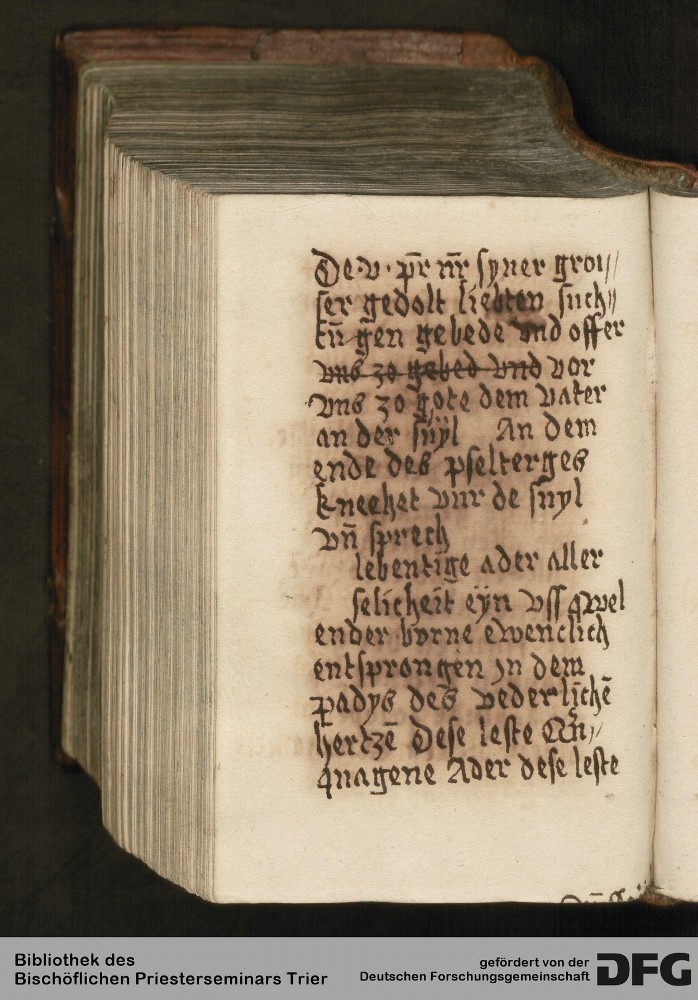 De · v · pr̄ nr̄ syner groi〃
ser gedolt liebten such〃
tū gen gebede vnd offer
vns zo gebed vnd vor
vns zo gote dem vater
an der süyl An dem
ende des pselterges
knechet vur de suyl
vn̄ sprech
lebentige ader aller
selicheit eÿn vss qwel
ender borne ewenclich
entsprongen jn dem
padys des vederlichē
hertzē Dese leste
qnagene Ader dese leste
Bibliothek des
Bischöflichen Priesterseminars Trier
gefördert von der
Deutschen Forschungsgemeinschaft DFG